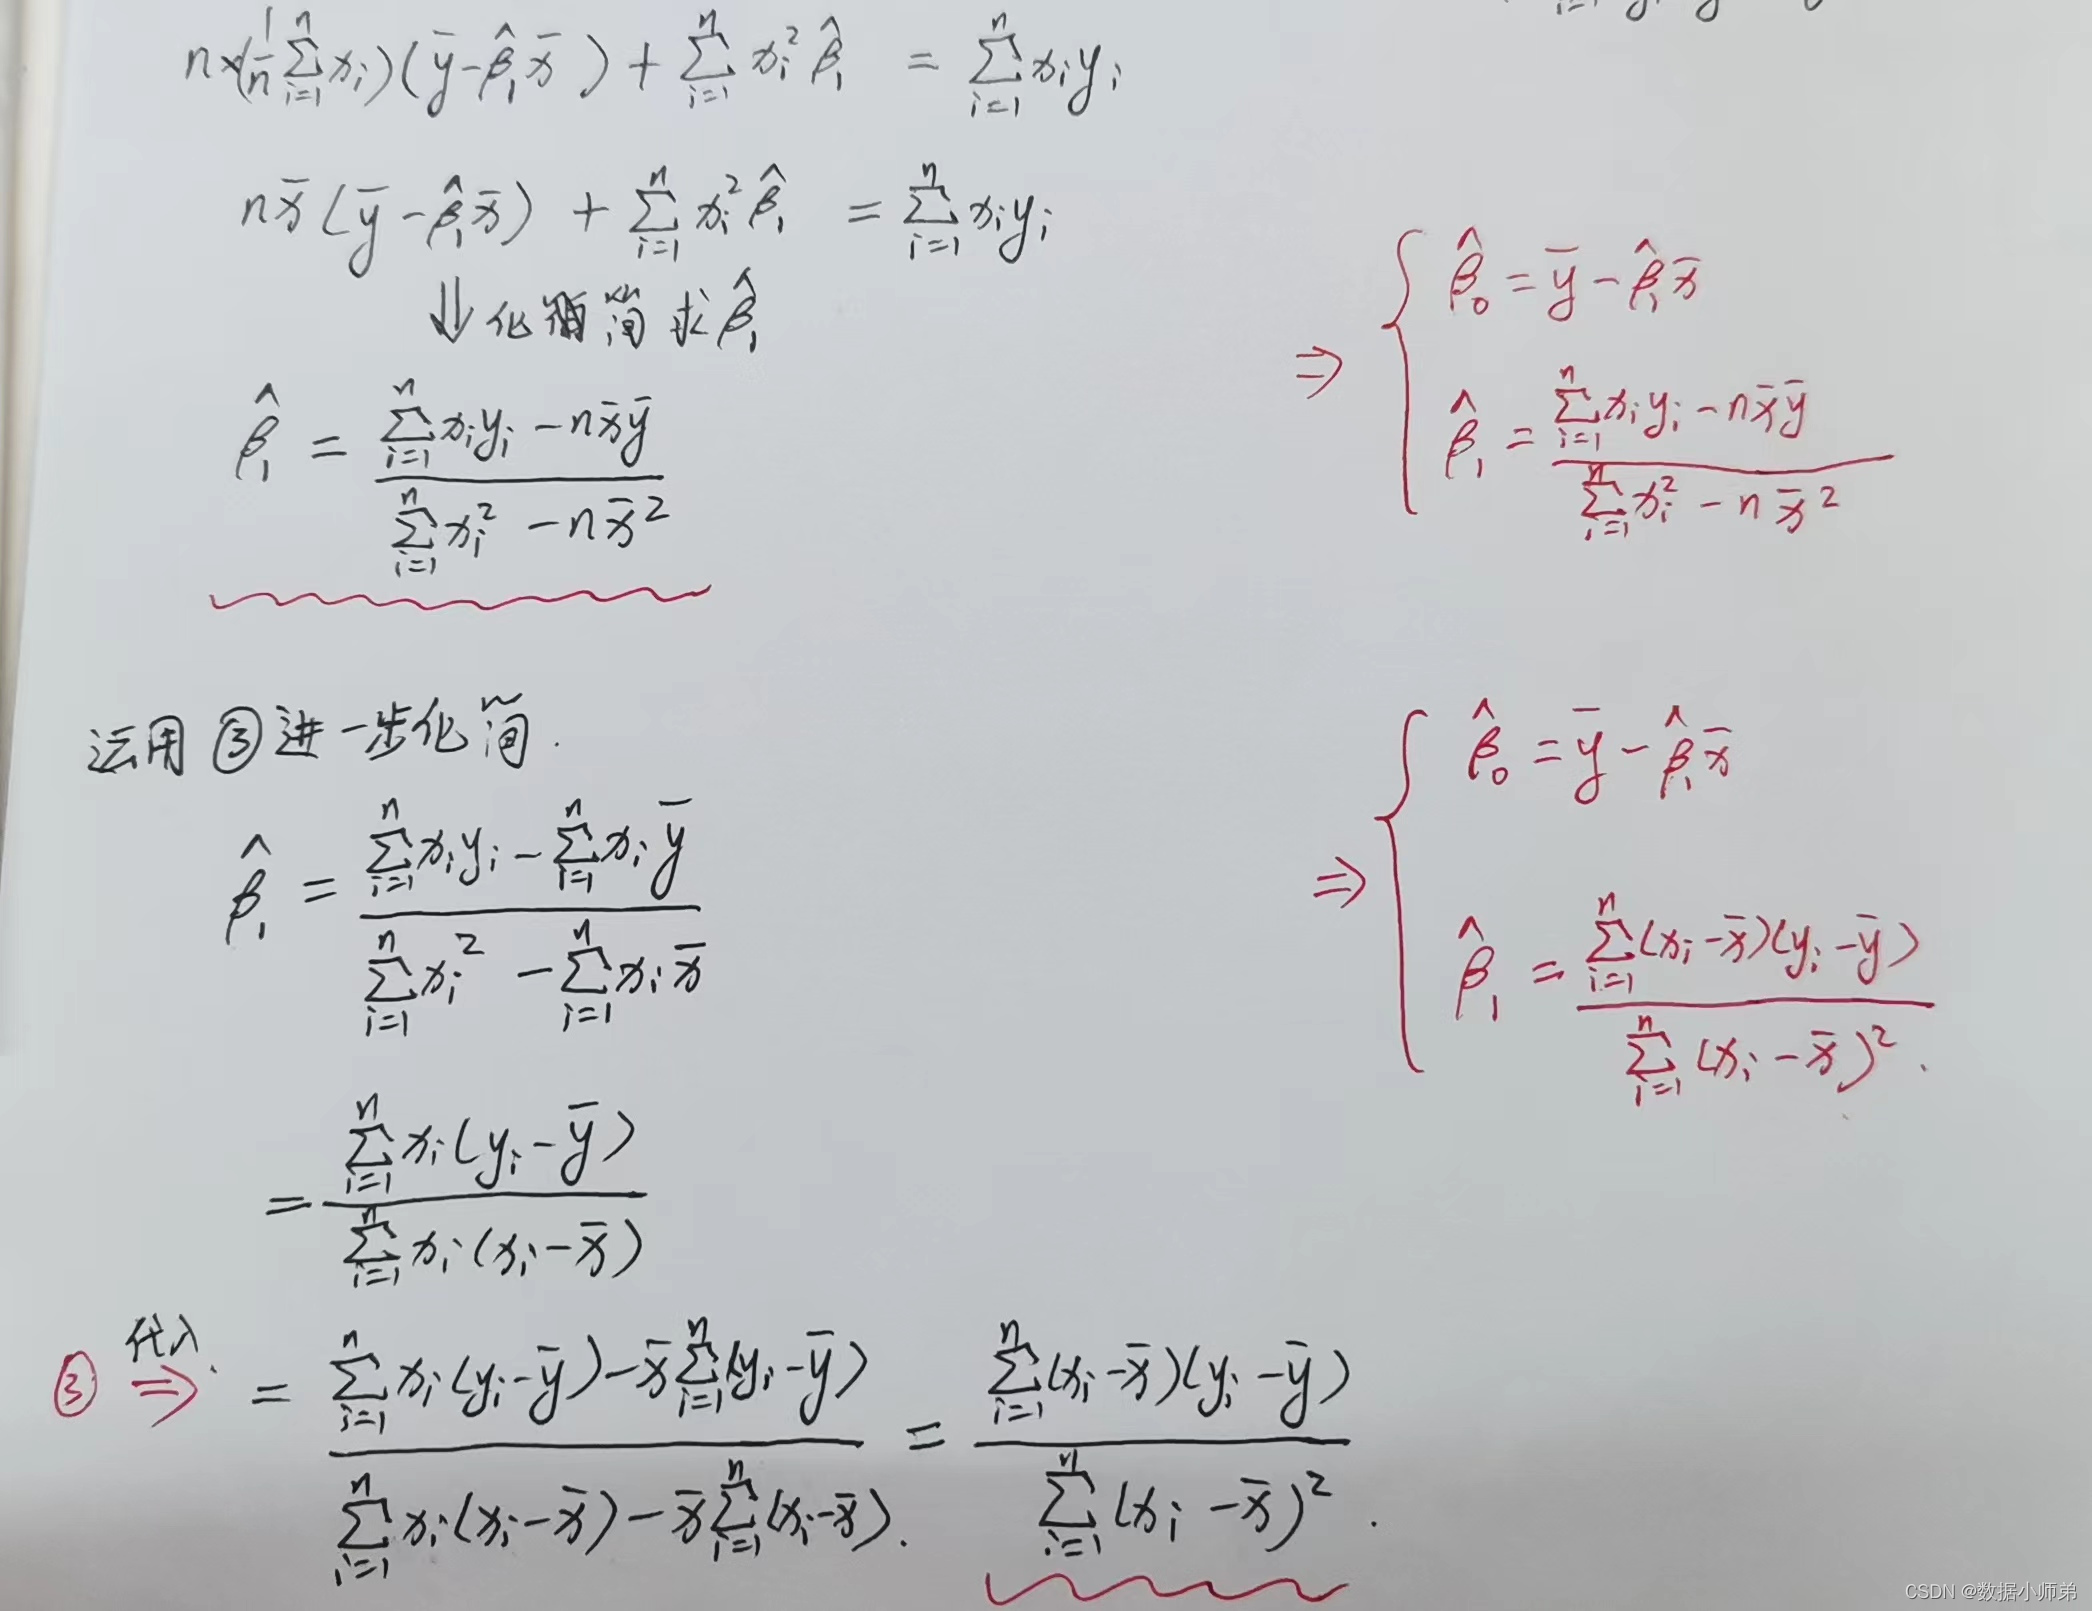 n×(1/n ∑_{i=1}^{n} x_i)(ȳ-β̂₁x̄) + ∑_{i=1}^{n} x_i² β̂₁ = ∑_{i=1}^{n} x_i y_i
n x̄ (ȳ-β̂₁x̄) + ∑_{i=1}^{n} x_i² β̂₁ = ∑_{i=1}^{n} x_i y_i
⇓ 化简求 β̂₁
β̂₁ = (∑_{i=1}^{n} x_i y_i - n x̄ȳ) / (∑_{i=1}^{n} x_i² - n x̄²)
⇒ { β̂₀ = ȳ - β̂₁x̄
β̂₁ = (∑_{i=1}^{n} x_i y_i - n x̄ȳ) / (∑_{i=1}^{n} x_i² - n x̄²)
运用 ③ 进一步化简.
β̂₁ = (∑_{i=1}^{n} x_i y_i - ∑_{i=1}^{n} x_i ȳ) / (∑_{i=1}^{n} x_i² - ∑_{i=1}^{n} x_i x̄)
= (∑_{i=1}^{n} x_i (y_i - ȳ)) / (∑_{i=1}^{n} x_i (x_i - x̄))
③ 代入 ⇒ = (∑_{i=1}^{n} x_i (y_i - ȳ) - x̄ ∑_{i=1}^{n} (y_i - ȳ)) / (∑_{i=1}^{n} x_i (x_i - x̄) - x̄ ∑_{i=1}^{n} (x_i - x̄)). = (∑_{i=1}^{n} (x_i - x̄)(y_i - ȳ)) / (∑_{i=1}^{n} (x_i - x̄)²).
⇒ { β̂₀ = ȳ - β̂₁x̄
β̂₁ = (∑_{i=1}^{n} (x_i - x̄)(y_i - ȳ)) / (∑_{i=1}^{n} (x_i - x̄)²).
CSDN @数据小师弟